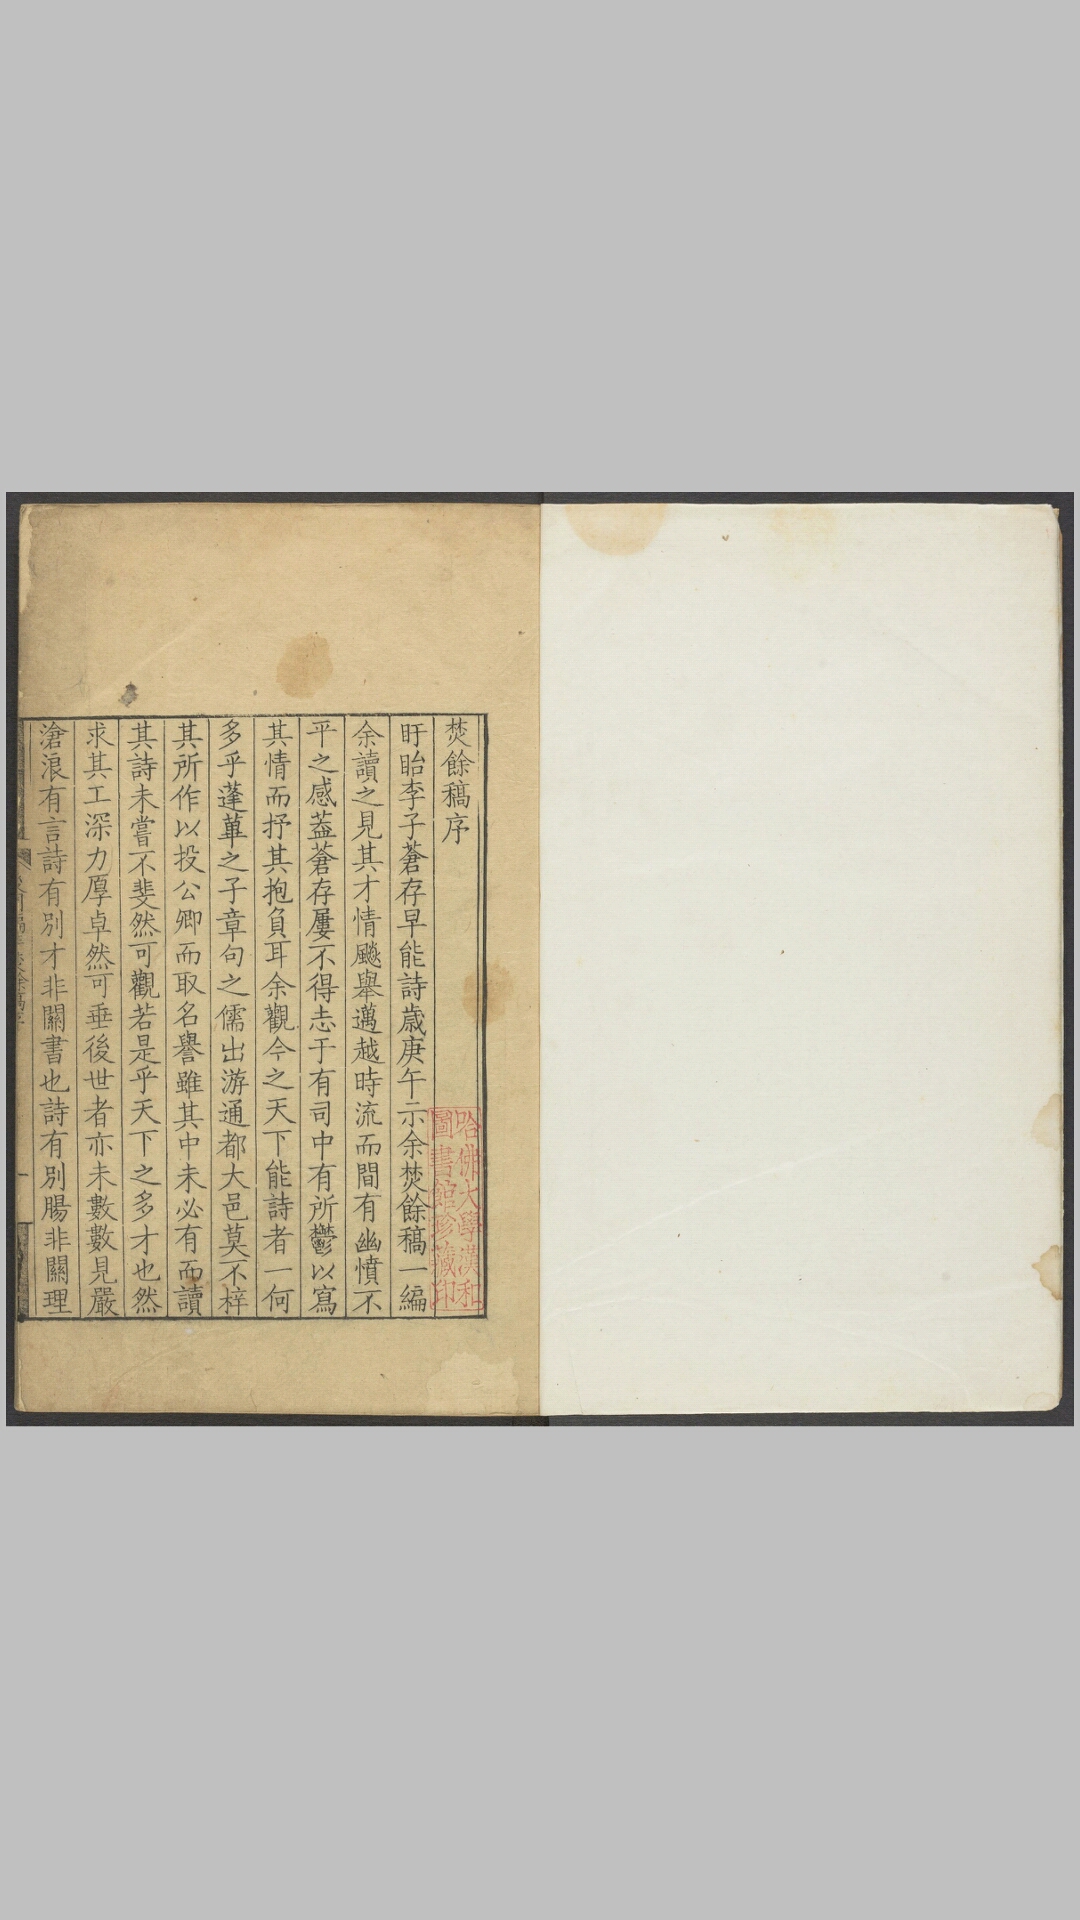 焚餘稿序
盱眙李子蒼存早能詩歲庚午示余焚餘稿一編
余讀之見其才情飈舉邁越時流而間有幽憤不
平之感葢蒼存屢不得志于有司中有所鬱以寫
其情而抒其抱負耳余觀今之天下能詩者一何
多乎蓬蓽之子章句之儒出游通都大邑莫不梓
其所作以投公卿而取名譽雖其中未必有而讀
其詩未嘗不斐然可觀若是乎天下之多才也然
求其工深力厚卓然可垂後世者亦未數數見嚴
滄浪有言詩有別才非關書也詩有別腸非關理
哈佛大學漢和
圖書館珍藏印